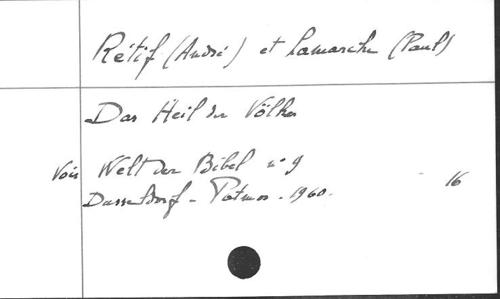 Rétif (André) et Lamarche (Paul)
Das Heil der Völker
Voir Welt der Bibel n° 9
Dusseldorf - Patmos - 1960. 16